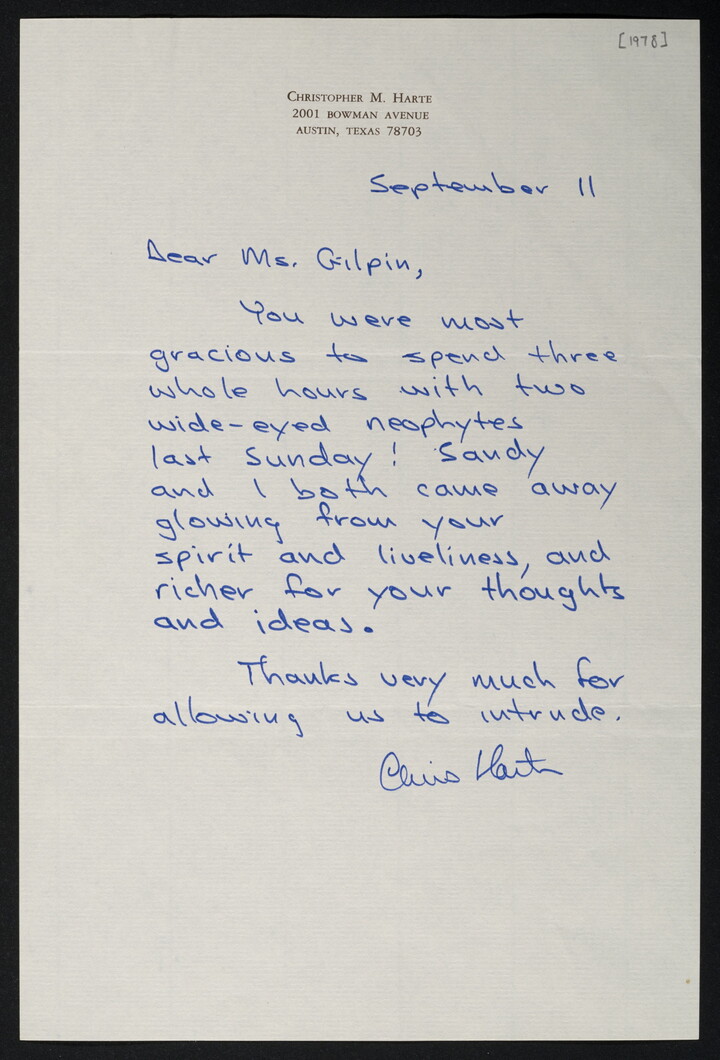 [1978]
Christopher M. Harte
2001 Bowman Avenue
Austin, Texas 78703
September 11
Dear Ms. Gilpin,
You were most
gracious to spend three
whole hours with two
wide-eyed neophytes
last Sunday! Sandy
and I both came away
glowing from your
spirit and liveliness, and
richer for your thoughts
and ideas.
Thanks very much for
allowing us to intrude.
Chris Harte